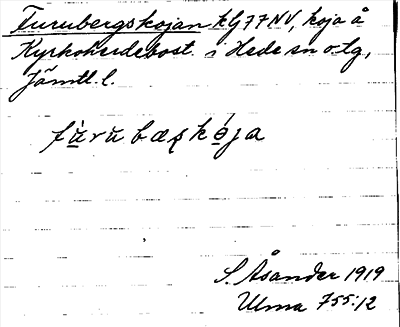 Furubergskojan kG77NV, koja å
Kyrkoherdebost. i Hede sn o. tg,
Jämtl. l.
fùrubæʂkója
S. Åsander 1919
Ulma 755:12